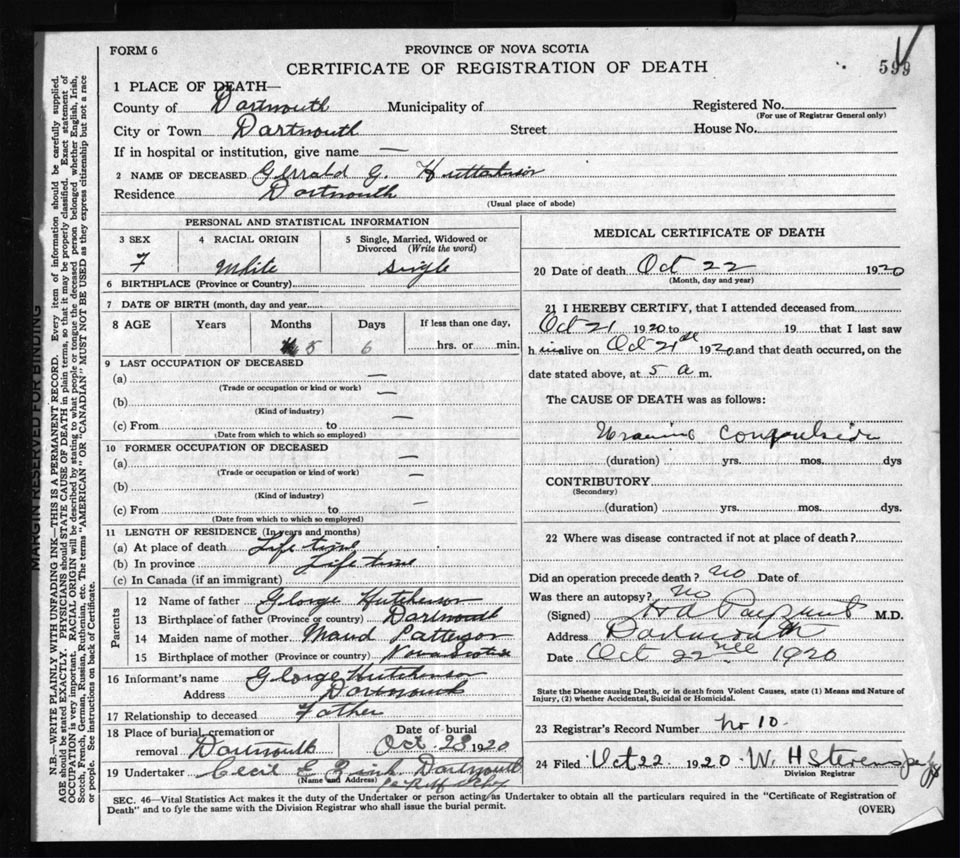 FORM 6
PROVINCE OF NOVA SCOTIA
CERTIFICATE OF REGISTRATION OF DEATH
599
1 PLACE OF DEATH—
County of Dartmouth Municipality of Registered No.
(For use of Registrar General only)
City or Town Dartmouth Street House No.
If in hospital or institution, give name —
2 NAME OF DECEASED Gerrald G. Hutcherson
Residence Dartmouth
(Usual place of abode)
PERSONAL AND STATISTICAL INFORMATION
3 SEX 4 RACIAL ORIGIN 5 Single, Married, Widowed or Divorced (Write the word)
7 White Single
6 BIRTHPLACE (Province or Country)
7 DATE OF BIRTH (month, day and year)
8 AGE Years Months Days If less than one day,
5 6 hrs. or min.
9 LAST OCCUPATION OF DECEASED
(a) —
(Trade or occupation or kind or work)
(b) —
(Kind of industry)
(c) From to
(Date from which to which so employed)
10 FORMER OCCUPATION OF DECEASED
(a) —
(Trade or occupation or kind of work)
(b) —
(Kind of industry)
(c) From to —
(Date from which to which so employed)
11 LENGTH OF RESIDENCE (In years and months)
(a) At place of death Life time
(b) In province Life time
(c) In Canada (if an immigrant)
Parents
12 Name of father George Hutcherson
13 Birthplace of father (Province or country) Dartmouth
14 Maiden name of mother Maud Patterson
15 Birthplace of mother (Province or country) Nova Scotia
16 Informant's name George Hutcherson
Address Dartmouth
17 Relationship to deceased Father
18 Place of burial, cremation or removal Dartmouth
Date of burial Oct. 23 1920
19 Undertaker Cecil E Zink Dartmouth
(Name and Address)
MEDICAL CERTIFICATE OF DEATH
20 Date of death Oct 22 1920
(Month, day and year)
21 I HEREBY CERTIFY, that I attended deceased from
Oct 21 1920 to 19 that I last saw
h im alive on Oct 21st 1920 and that death occurred, on the
date stated above, at 5 a m.
The CAUSE OF DEATH was as follows:
(duration) yrs. mos. dys
CONTRIBUTORY
(Secondary)
(duration) yrs. mos. dys.
22 Where was disease contracted if not at place of death?
Did an operation precede death? no Date of
Was there an autopsy? no
(Signed) Payzant M.D.
Address Dartmouth
Date Oct 22nd 1920
State the Disease causing Death, or in death from Violent Causes, state (1) Means and Nature of
Injury, (2) whether Accidental, Suicidal or Homicidal.
23 Registrar's Record Number No 10.
24 Filed Oct 22 1920 W. H Stevens
Division Registrar
SEC. 46—Vital Statistics Act makes it the duty of the Undertaker or person acting as Undertaker to obtain all the particulars required in the "Certificate of Registration of
Death" and to fyle the same with the Division Registrar who shall issue the burial permit.
(OVER)
MARGIN RESERVED FOR BINDING
N.B.—WRITE PLAINLY WITH UNFADING INK—THIS IS A PERMANENT RECORD. Every item of information should be carefully supplied.
AGE should be stated EXACTLY. PHYSICIANS should STATE CAUSE OF DEATH in plain terms, so that it may be properly classified. Exact statement of
OCCUPATION is very important. RACIAL ORIGIN will be described by stating to what people or tongue the deceased person belonged whether English, Irish,
Scotch, French, German, Russian, Ruthenian, etc. The terms "AMERICAN" OR "CANADIAN" MUST NOT BE USED as they express citizenship but not a race
or people. See instructions on back of Certificate.